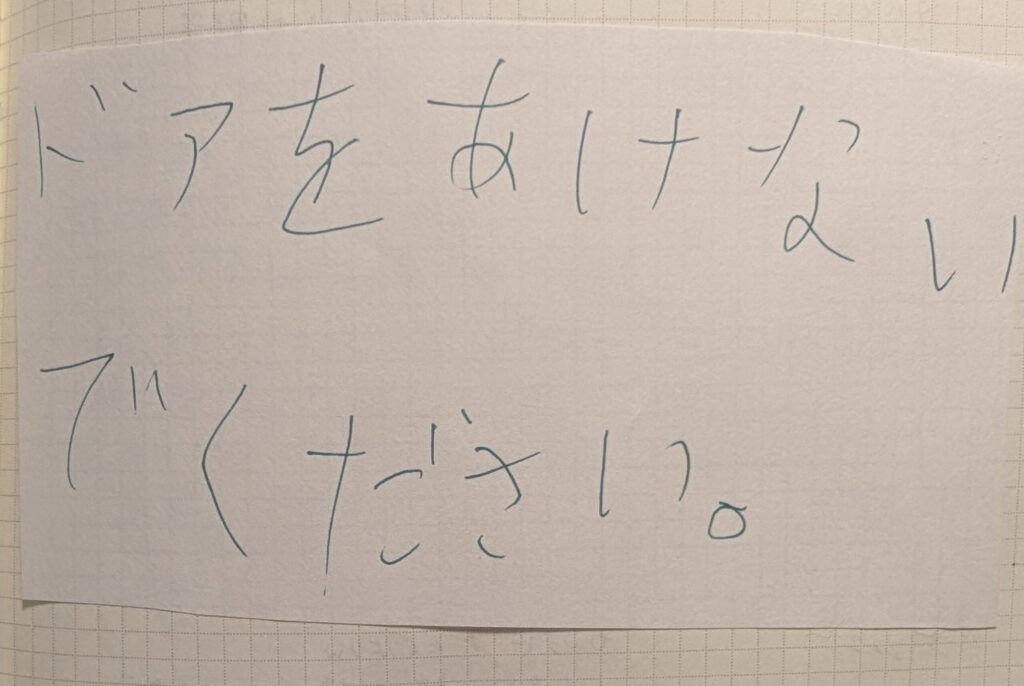 ドアをあけない
でください。